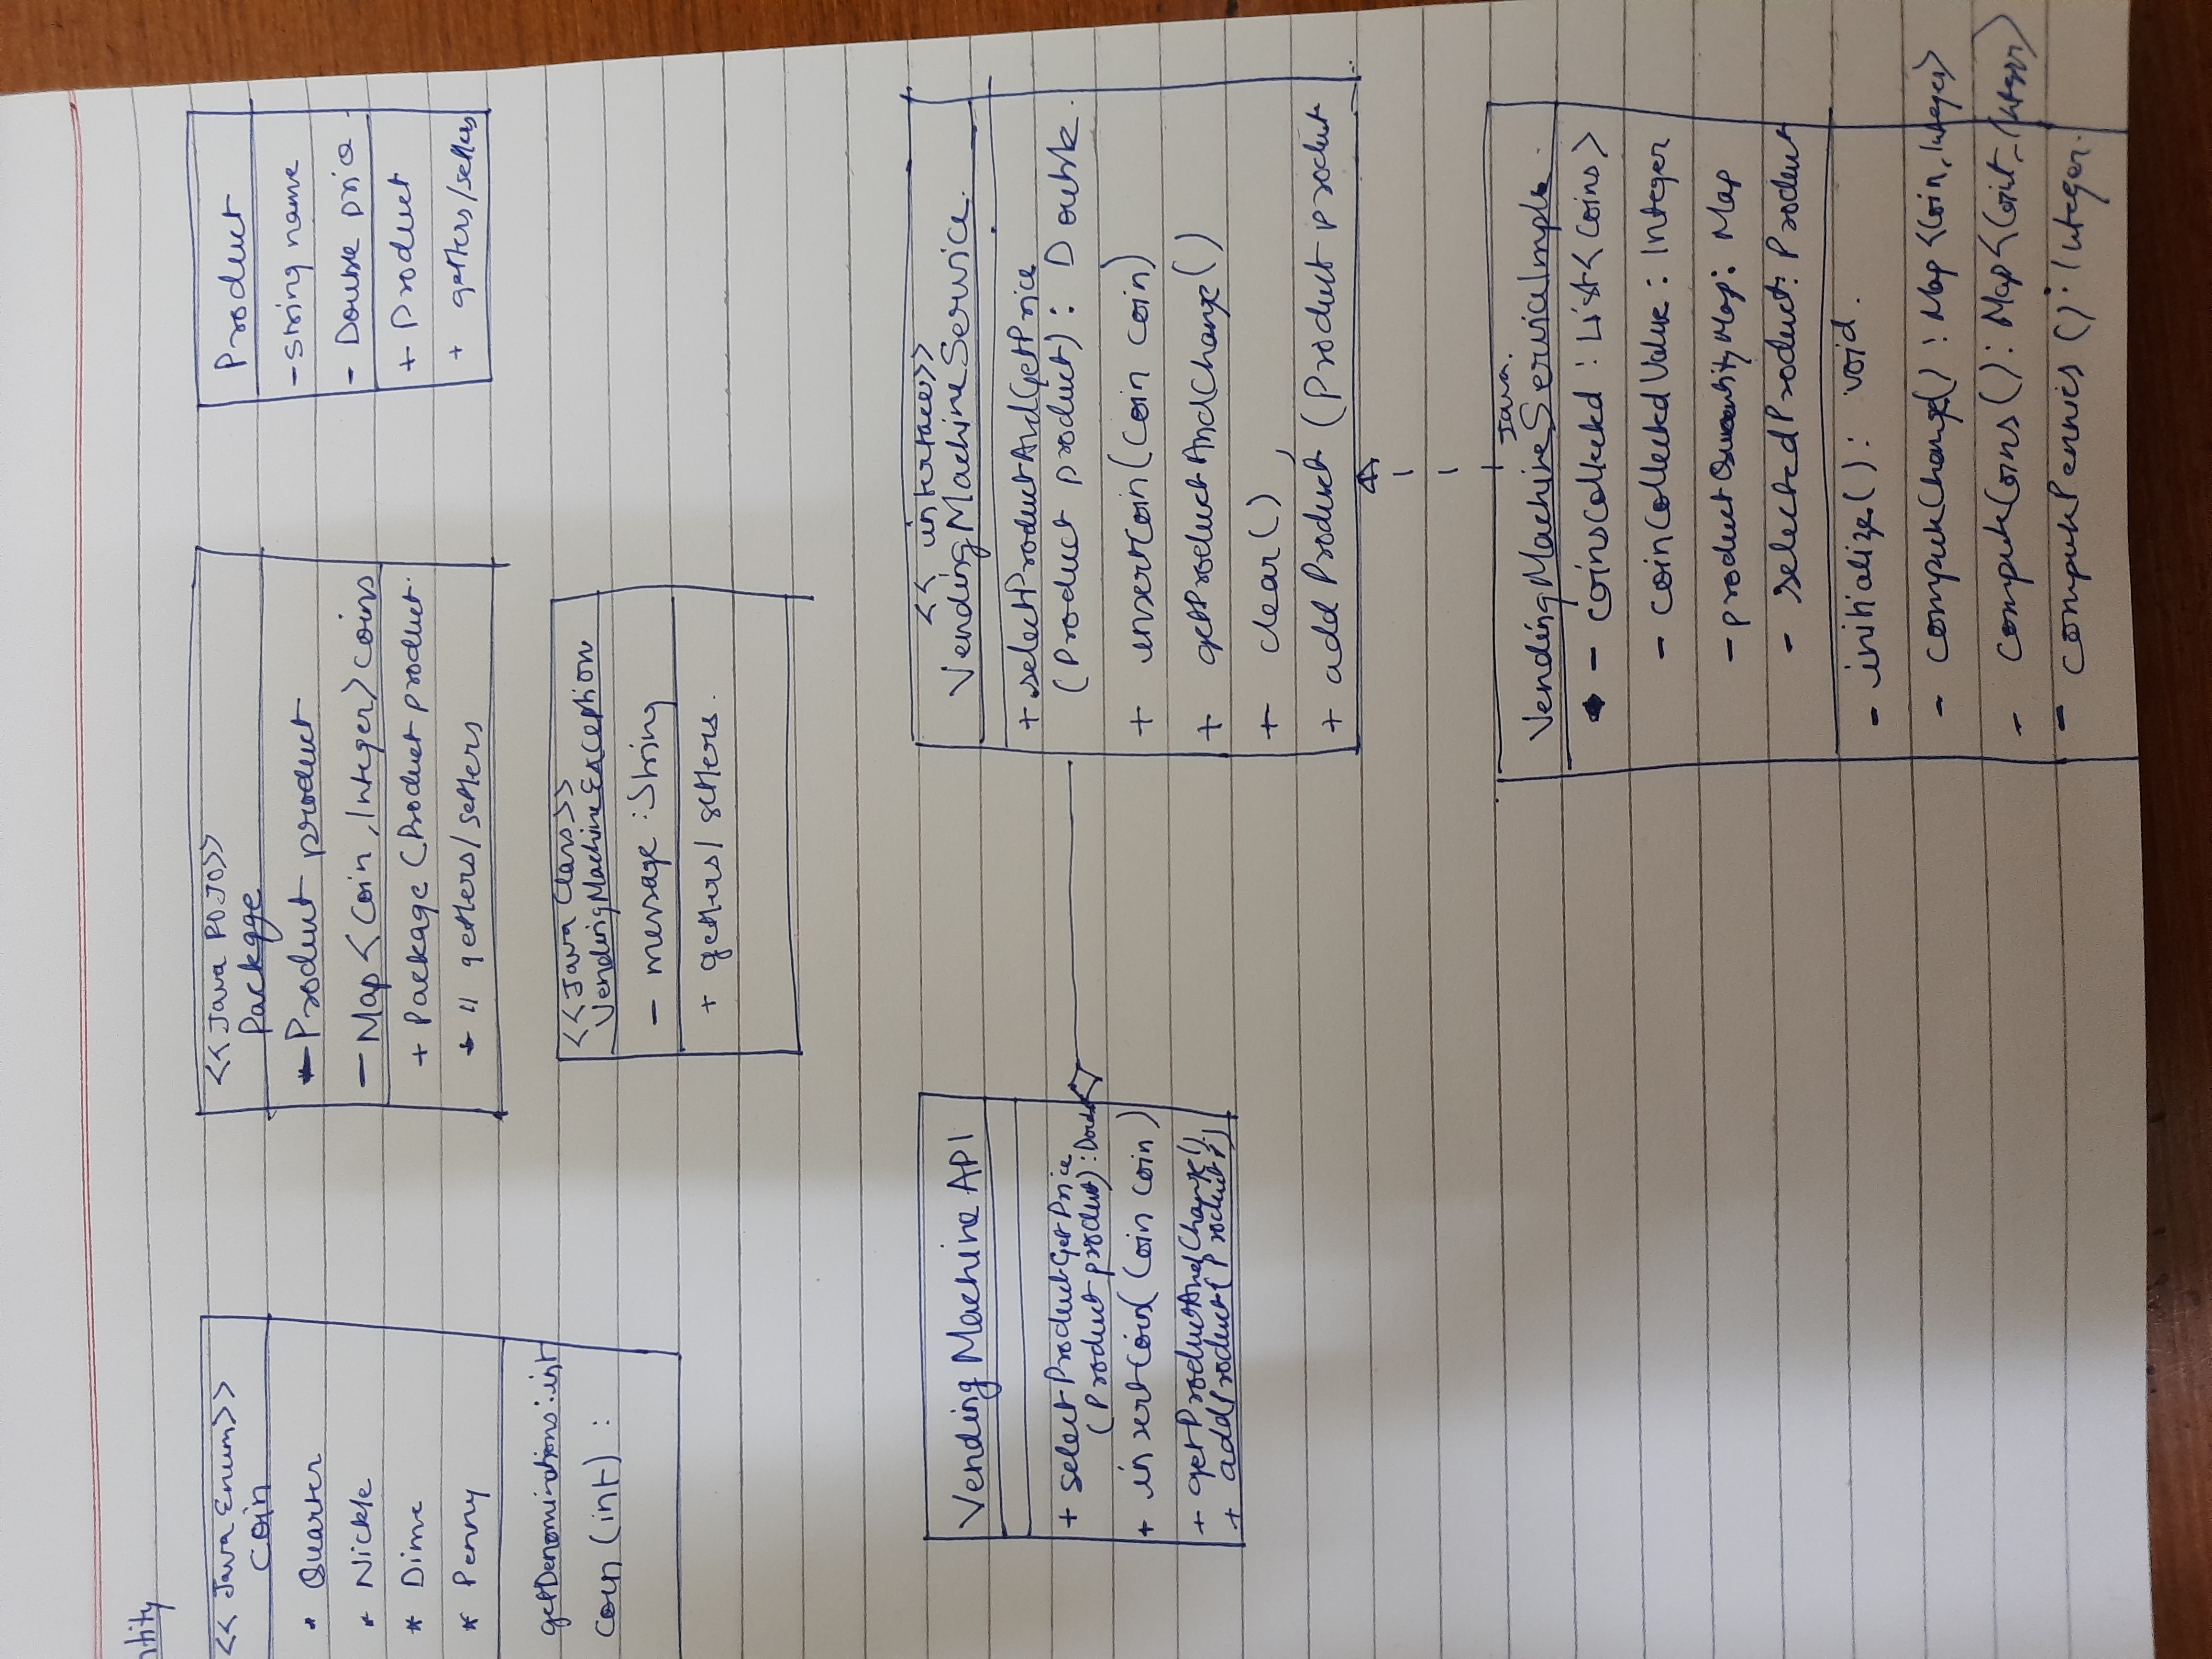 ntity
<< Java Enum>>
Coin
* Quarter
* Nickle
* Dime
* Penny
getDenominations : int
Coin (int) :
<< Java POJO>>
Package
- Product product
- Map < Coin , Integer > coins
+ Package ( Product product
+ " getters/setters
Product
- String name
- Double price
+ Product
+ getters/setters
<< Java Class >>
VendingMachineException
- message : String
+ getters/ setters .
Vending Machine API
+ selectProductGetPrice
( Product product) : Doub
+ insertCoin( Coin coin )
+ getProductAndChange()
+ addProduct( Product p)
<< interface>>
VendingMachineService.
+ selectProductAndGetPrice
( Product product) : Double .
+ insertCoin (Coin coin)
+ getProductAndChange ()
+ clear () ,
+ add Product ( Product product
Java.
VendingMachineServiceImple .
- coinsCollected : List < Coins >
- coinCollectedValue : Integer
- productQuantityMap : Map
- selectedProduct : Product
- initialize () : void .
- computeChange() : Map <Coin, Integer>
- computeCoins () : Map < Coint, Integer>
- computePennies () : Integer.